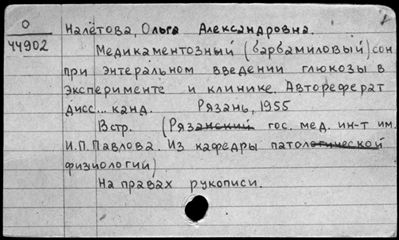 О
44902
Налётова, Ольга Александровна.
Медикаментозный (барбамиловый) сон
при энтеральном введении глюкозы в
эксперименте и клинике. Автореферат
дисс... канд. Рязань, 1955
В стр. (Рязанский гос. мед. ин-т им.
И.П. Павлова. Из кафедры патологической
физиологии)
На правах рукописи.